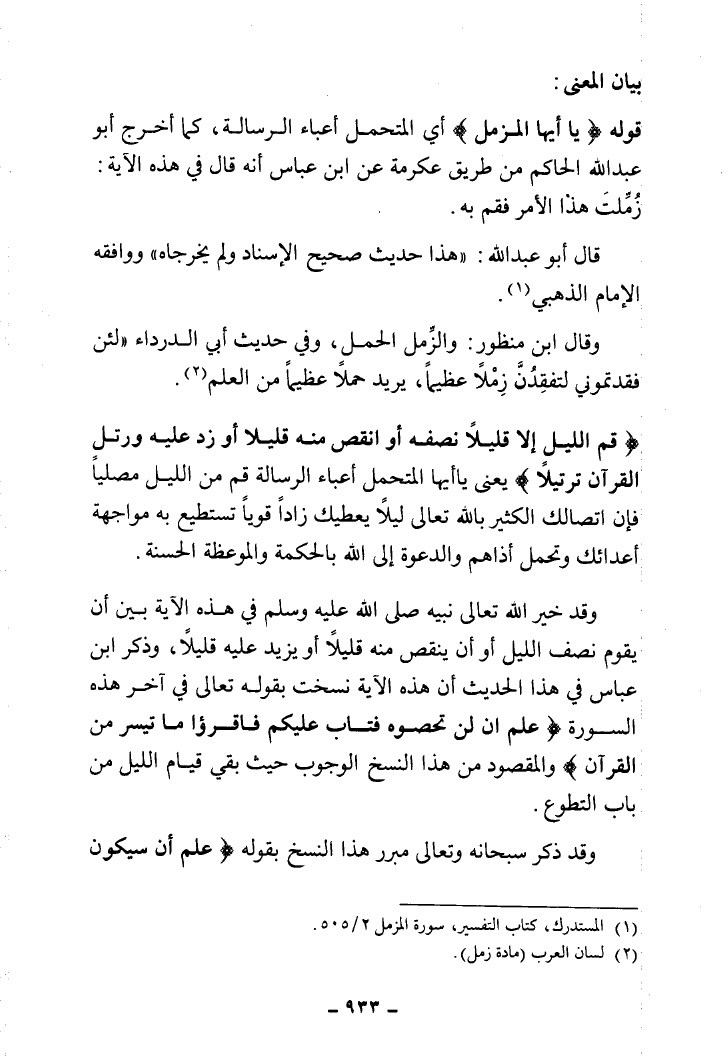 بيان المعنى :
قوله ﴿ يا أيها المزمل ﴾ أي المتحمل أعباء الرسالة، كما أخرج أبو
عبدالله الحاكم من طريق عكرمة عن ابن عباس أنه قال في هذه الآية :
زُمِّلتَ هذا الأمر فقم به .
قال أبو عبدالله : «هذا حديث صحيح الإسناد ولم يخرجاه» ووافقه
الإمام الذهبي(١) .
وقال ابن منظور: والزِّمل الحمل، وفي حديث أبي الدرداء «لئن
فقدتموني لتفقِدُنَّ زِمْلاً عظيماً، يريد حملاً عظيماً من العلم(٢) .
﴿ قم الليل إلا قليلاً نصفه أو انقص منه قليلا أو زد عليه ورتل
القرآن ترتيلاً ﴾ يعني ياأيها المتحمل أعباء الرسالة قم من الليل مصلياً
فإن اتصالك الكثير بالله تعالى ليلاً يعطيك زاداً قوياً تستطيع به مواجهة
أعدائك وتحمل أذاهم والدعوة إلى الله بالحكمة والموعظة الحسنة .
وقد خير الله تعالى نبيه صلى الله عليه وسلم في هذه الآية بين أن
يقوم نصف الليل أو أن ينقص منه قليلاً أو يزيد عليه قليلاً، وذكر ابن
عباس في هذا الحديث أن هذه الآية نسخت بقوله تعالى في آخر هذه
السورة ﴿ علم ان لن تحصوه فتاب عليكم فاقرؤا ما تيسر من
القرآن ﴾ والمقصود من هذا النسخ الوجوب حيث بقي قيام الليل من
باب التطوع .
وقد ذكر سبحانه وتعالى مبرر هذا النسخ بقوله ﴿ علم أن سيكون
(١) المستدرك، كتاب التفسير، سورة المزمل ٥٠٥/٢ .
(٢) لسان العرب (مادة زمل).
- ٩٣٣ -